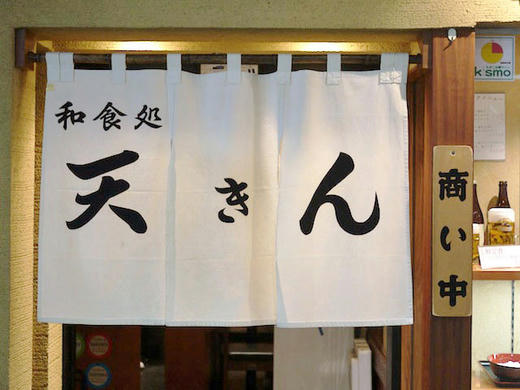 和食処
天きん
商い中
kismo